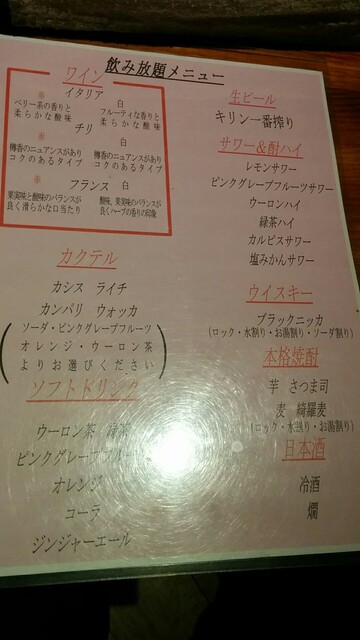 飲み放題メニュー
ワイン
イタリア
赤 白
ベリー系の香りと フルーティな香りと
柔らかな酸味 柔らかな酸味
チリ
赤 白
樽香のニュアンスがあり 樽香のニュアンスがあり
コクのあるタイプ コクのあるタイプ
フランス
赤 白
果実味と酸味のバランスが 酸味、果実味のバランスが
良く滑らかな口当たり 良くハーブの香りの印象
カクテル
カシス ライチ
カンパリ ウォッカ
(ソーダ・ピンクグレープフルーツ
オレンジ・ウーロン茶
よりお選びください)
ソフトドリンク
ウーロン茶 緑茶
ピンクグレープフルーツ
オレンジ
コーラ
ジンジャーエール
生ビール
キリン一番搾り
サワー&酎ハイ
レモンサワー
ピンクグレープフルーツサワー
ウーロンハイ
緑茶ハイ
カルピスサワー
塩みかんサワー
ウイスキー
ブラックニッカ
(ロック・水割り・お湯割り・ソーダ割り)
本格焼酎
芋 さつま司
麦 綺羅麦
(ロック・水割り・お湯割り)
日本酒
冷酒
燗